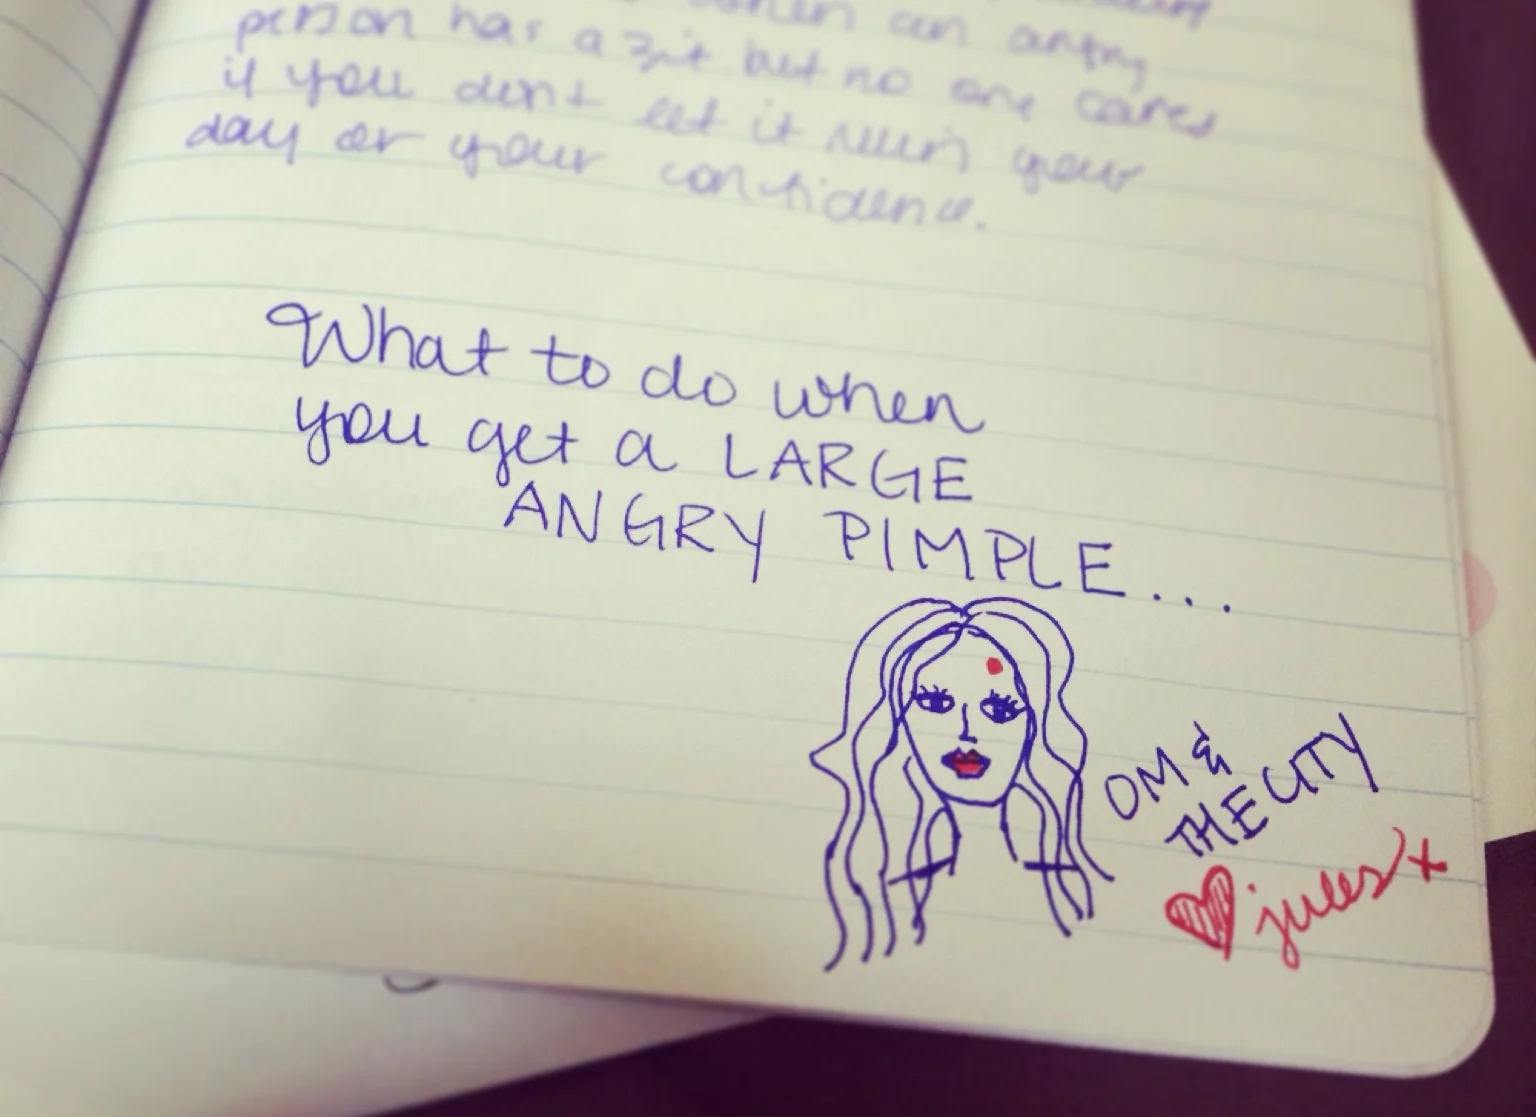 when an antny
person has a zit but no one cares
if you dont let it ruin your
day or your confidence.
What to do when
you get a LARGE
ANGRY PIMPLE...
OM &
THE CITY
jules x